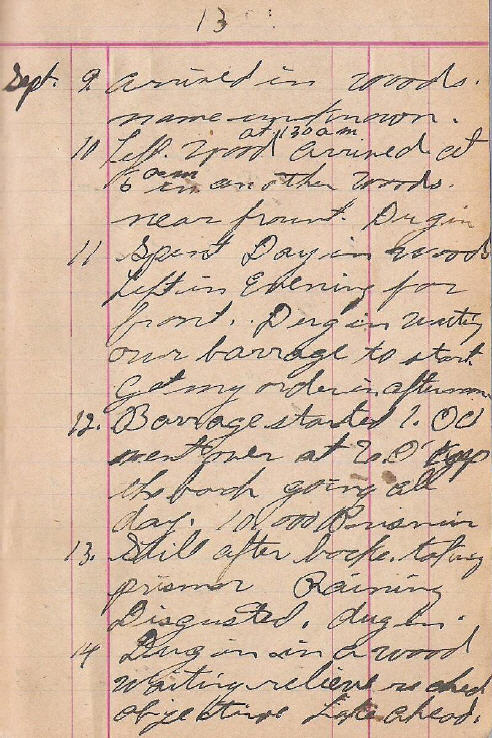 13
Sept. 9 arrived in woods.
name unknown.
at 130 am
10 Left. Wood arrived at
6 am in another woods.
near frount. Dug in
11 Spent Day in woods
Left in Evening for
front. Dug in waiting
our barrage to start
Get my order in afternoon
12. Barrage started 1. Oct
went over at 5. O
the boch going all
day. 10,000 Prisnier
13. Still after boche. taking
prisnor Raining
Disgusted. dug in.
14 Dug in in a wood
Waiting relieve reched
objective Lake ahead.